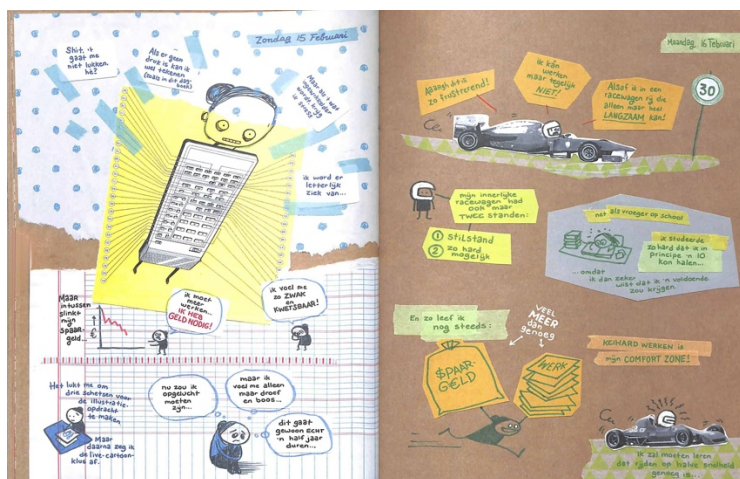 Zondag 15 Februari
Shit, 't
gaat me
niet lukken
hè?
Als er geen
druk is kan ik
wel tekenen
(zoals in dit dag-
boek)
Maar als 't wat
ik stress
ik word er
letterlijk
ziek van...
MAAR
intussen
slinkt
mijn
SPAAR-
geld...
€
ik moet
meer
werken...
IK HEB
GELD NODIG!
ik voel me
zo ZWAK
en
KWETSBAAR!
Het lukt me om
drie schetsen voor
de illustratie-
opdracht
te maken
Maar
daarna zeg ik
de live-cartoon-
klus af.
nu zou ik
opgelucht
moeten
zijn...
maar ik
voel me alleen
maar droef
en boos...
dit gaat
gewoon ECHT
'n half jaar
duren...
Maandag 16 Februari
Aaaagh dit is
zo frustrerend!
ik kán
werken
maar tegelijk
NIET!
Alsof ik in een
racewagen rij die
alleen maar heel
LANGZAAM kan!
30
mijn innerlijke
racewagen had
ook maar
TWEE STANDEN:
1 stilstand
2 zo hard
mogelijk
net als vroeger op school
ik studeerde
zo hard dat ik in
principe 'n 10
kon halen...
...omdat
ik dan zeker
wist dat ik 'n voldoende
zou krijgen
En zo leef ik
nog steeds:
VEEL
MEER
dan
genoeg
$PAAR-
G€LD
WERK
KEIHARD WERKEN is
mijn COMFORT ZONE!
Ik zal moeten leren
dat rijden op halve snelheid
genoeg is...